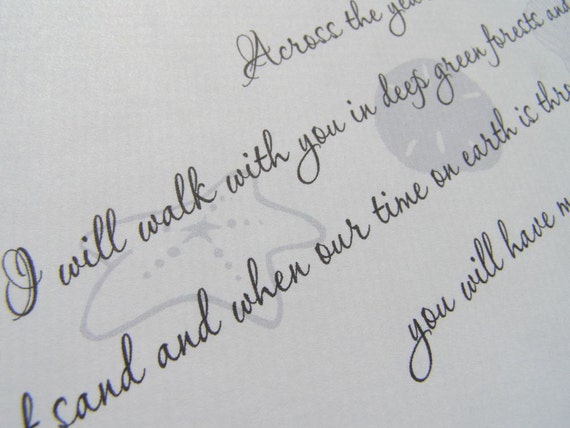 Across the
I will walk with you in deep green forests and
sand and when our time on earth is
you will have